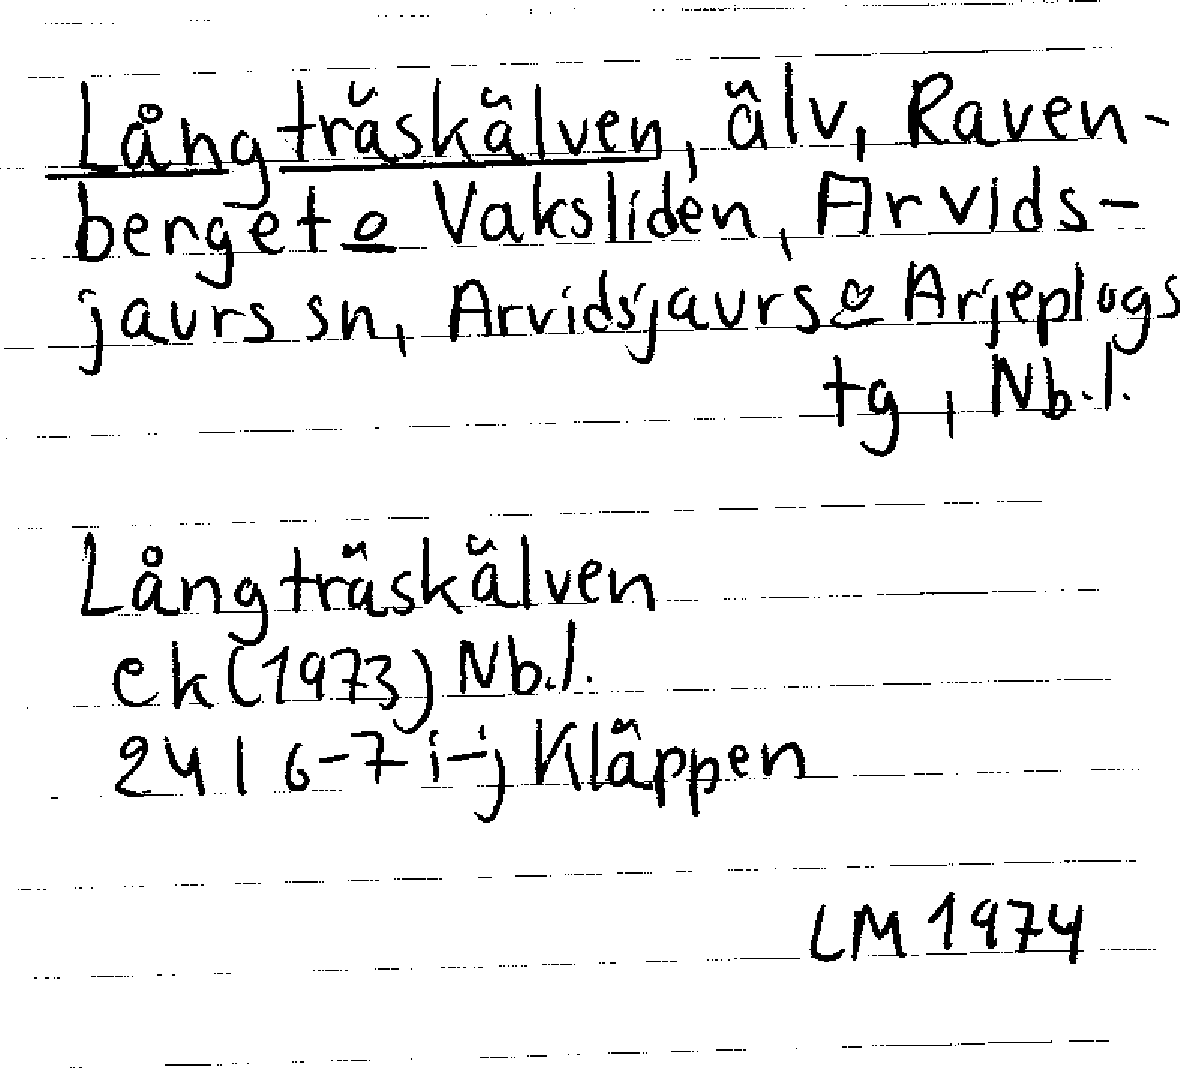 Långträskälven, älv, Raven-
berget o Vaksliden, Arvids-
jaurs sn, Arvidsjaurs o Arjeplogs
tg, Nb.l.
Långträskälven
ek (1973) Nb.l.
241 6-7 i-j Kläppen
LM 1974